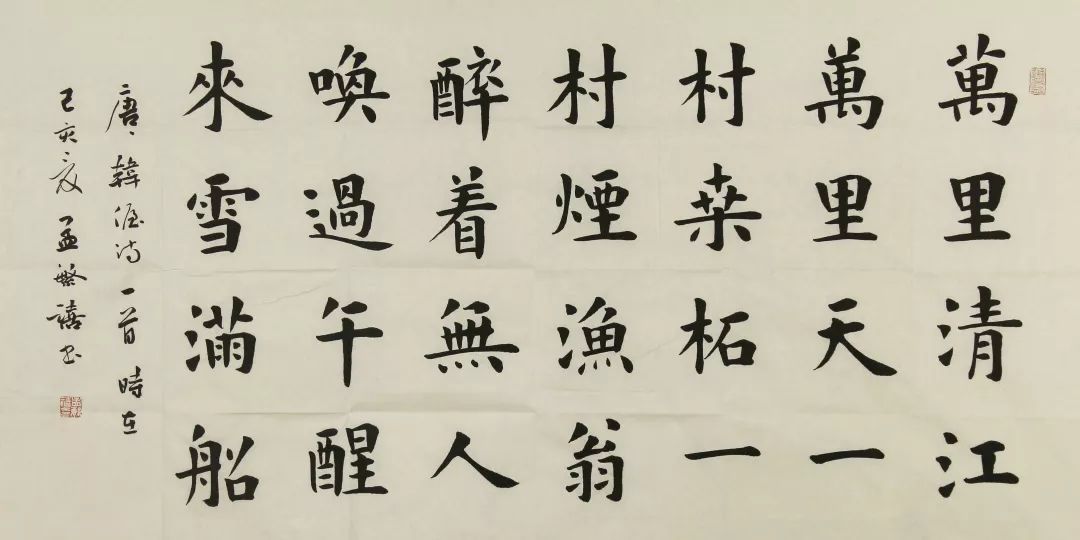 萬里清江
萬里天一
村桒柘一
村煙漁翁
醉着無人
喚過午醒
來雪滿船
唐、韓偓诗一首時在
己亥夏孟繁禧书